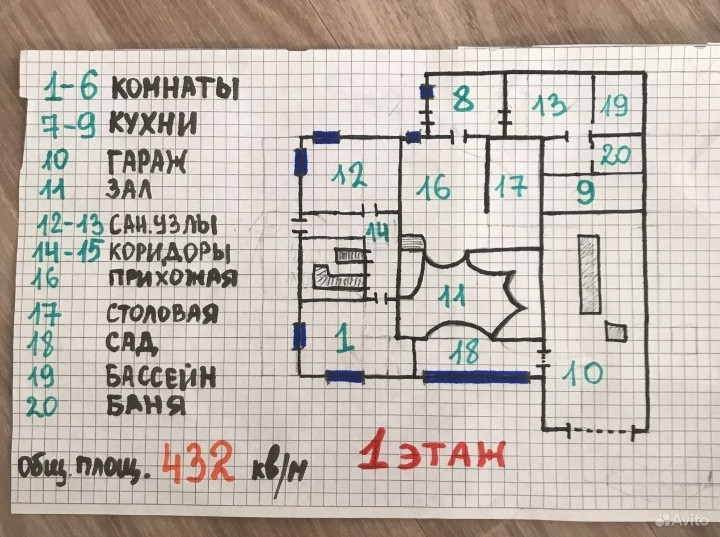 1-6 КОМНАТЫ
7-9 КУХНИ
10 ГАРАЖ
11 ЗАЛ
12-13 САН.УЗЛЫ
14-15 КОРИДОРЫ
16 ПРИХОЖАЯ
17 СТОЛОВАЯ
18 САД
19 БАССЕЙН
20 БАНЯ
общ.площ. 432 кв/м
1 ЭТАЖ
8 13 19
20
12 16 17 9
14
11
1 18 10
Avito